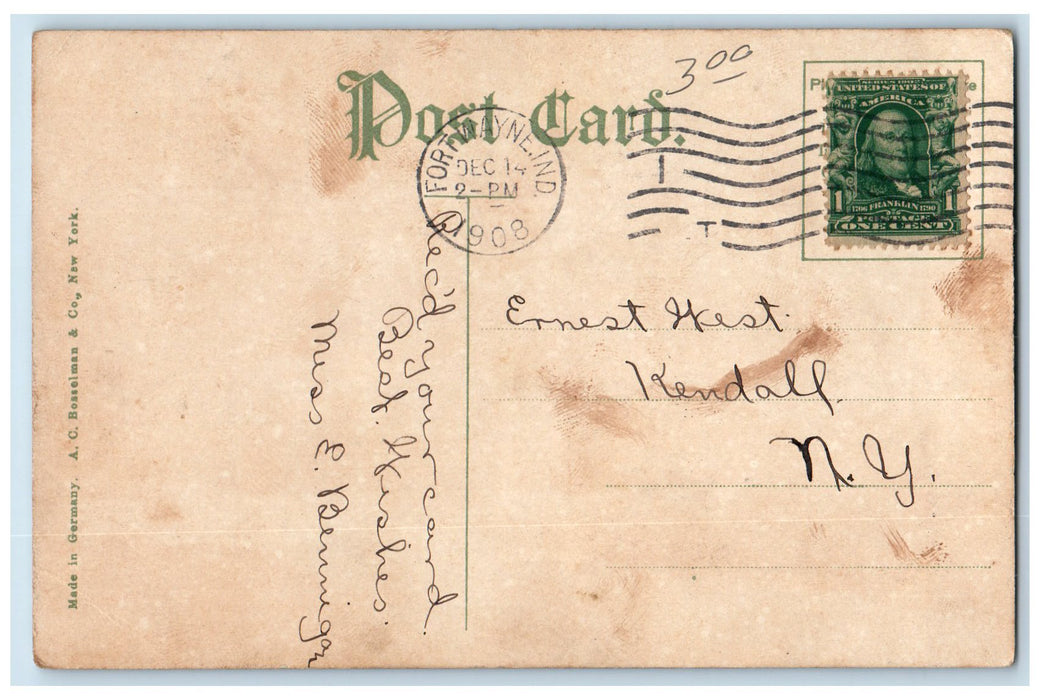 3 00
Post Card.
FORT WAYNE, IND
DEC 14
2-PM
1908
T
SERIES 1902
UNITED STATES OF
AMERICA
1 1706 FRANKLIN 1790 1
POSTAGE
ONE CENT
Ernest West.
Kendall.
N.Y.
Rec'd your card.
Best Wishes.
Miss E. Bennigan
Made in Germany. A. C. Bosselman & Co., New York.